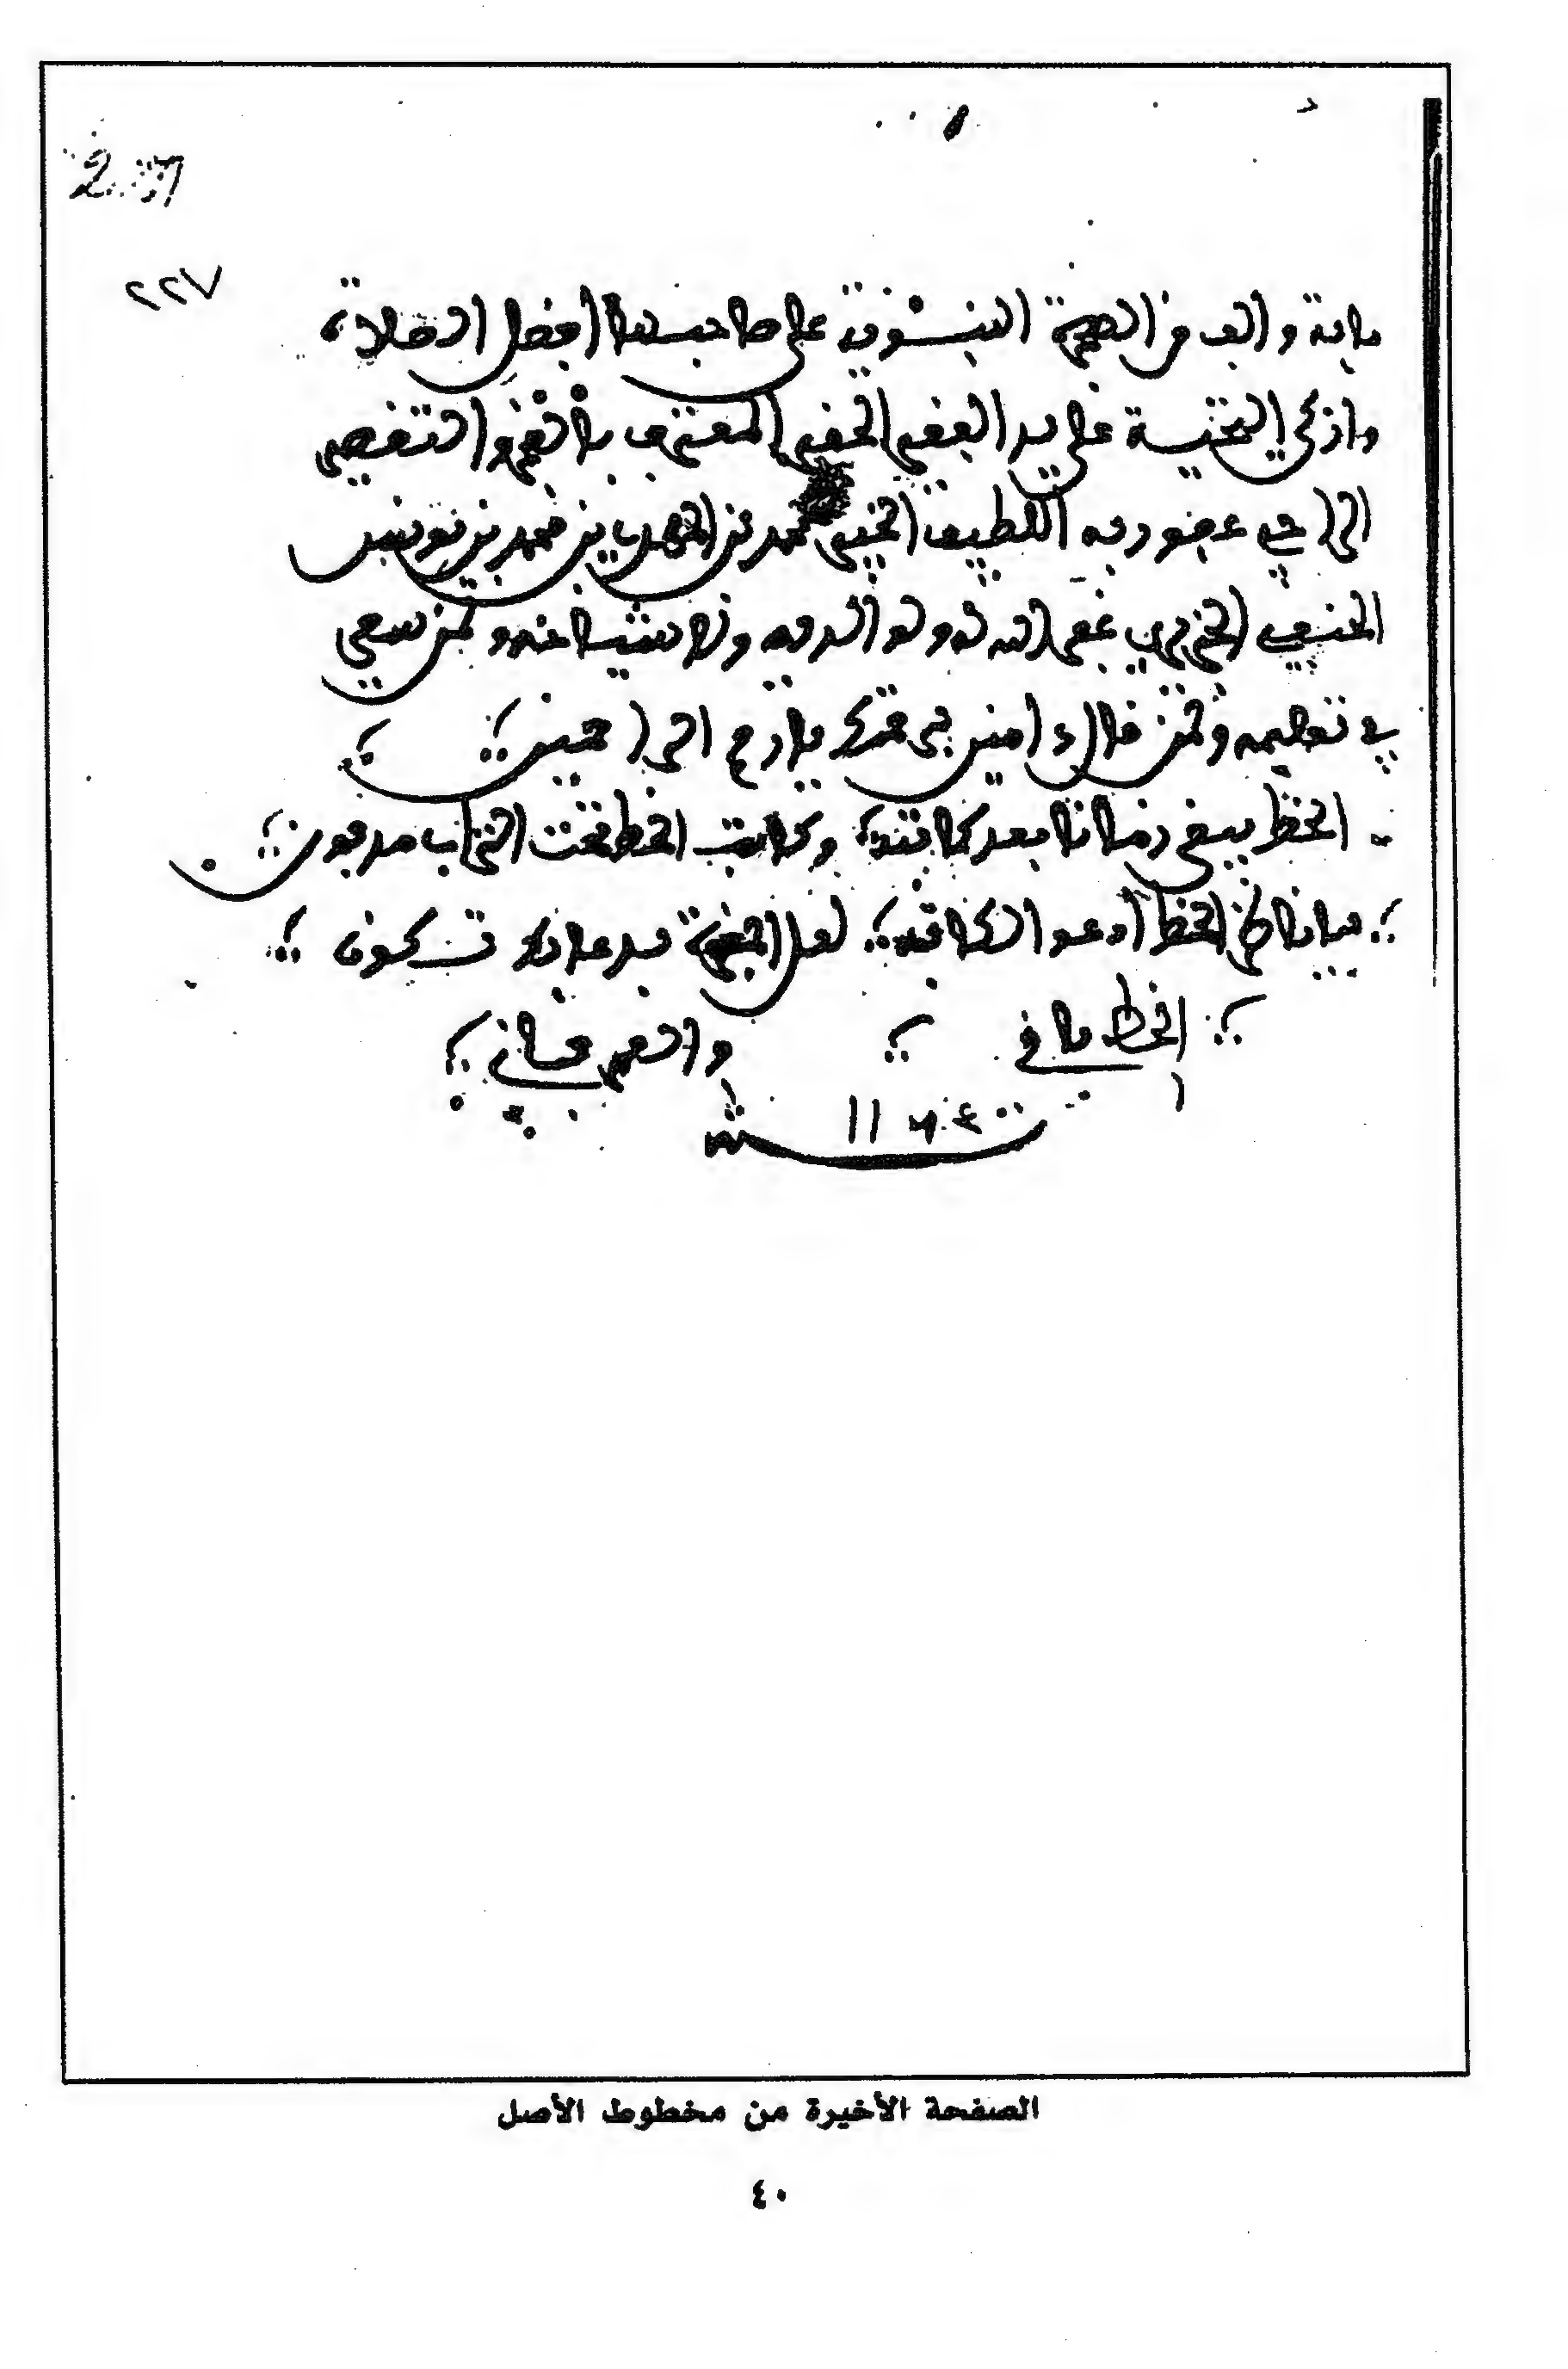 227
٢٢٧
ماية والف من الهجرة النبوية على صاحبها افضل الصلاة
وازكى التحية على يد الفقير الحقير المعترف بالعجز والتقصير
الراجي عفو ربه اللطيف الخبير محمد بن محمد بن يونس
الحنفي غفر الله له ولوالديه ولمشايخه ولمن سعى
في تعليمه ولمن قال امين يارب
الخط يبقى زمانا بعد كاتبه وكاتب الخط تحت التراب مدفون
ياناظر الخط ادعو لكاتبه لعل المغفرة بدعائك تكون
الخط باقي والعمر فاني
سنة
الصفحة الأخيرة من مخطوط الأصل
٤٠